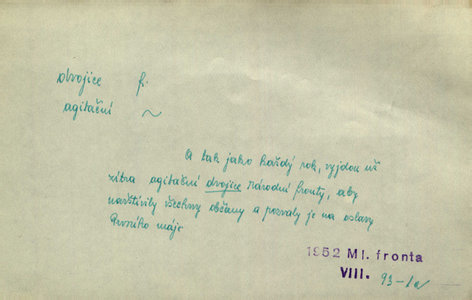 dvojice f.
agitační ~
A tak jako každý rok, vyjdou už
zítra agitační dvojice Národní fronty, aby
navštívily všechny občany a pozvaly je na oslavy
Prvního máje
1952 Ml. fronta
VIII. 93-1a